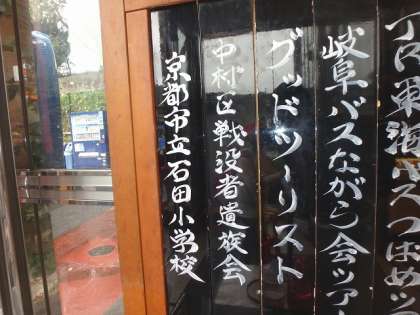 東海バスつばめツ
岐阜バスながら会ツアー
グッドツーリスト
中村区戦没者遺族会
京都市立石田小学校